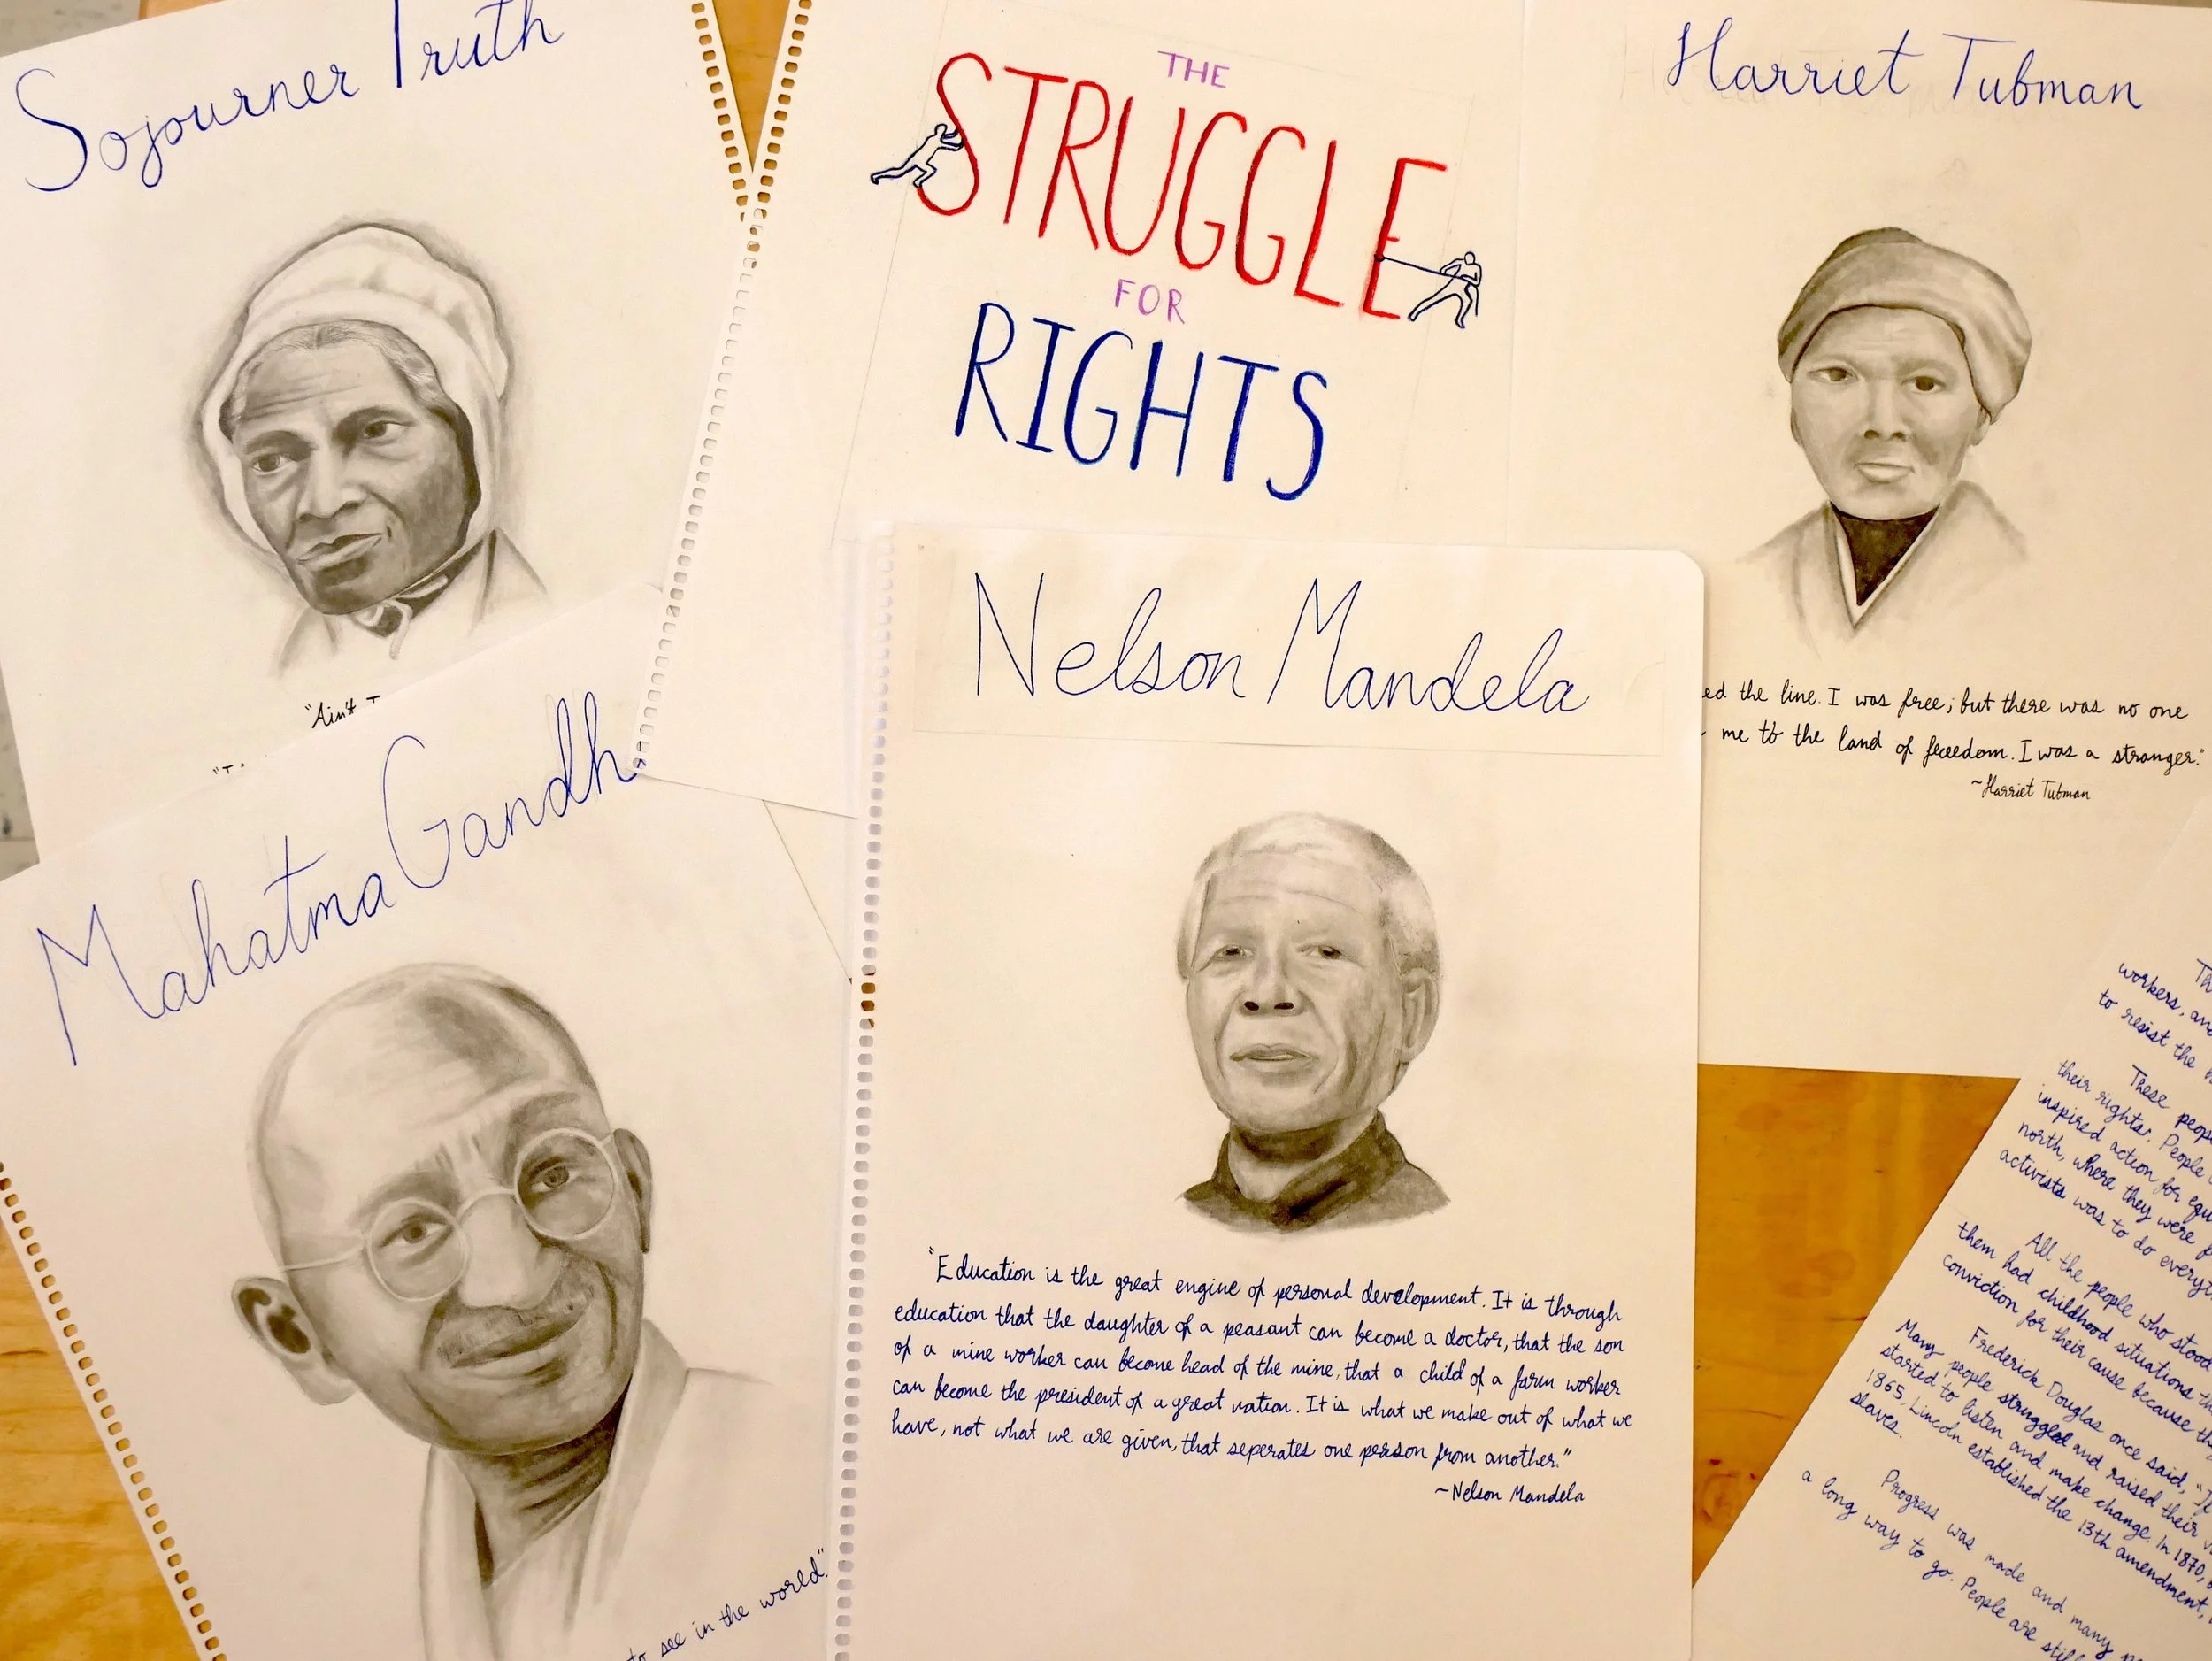 Sojourner Truth
"Ain't
THE
STRUGGLE
FOR
RIGHTS
Harriet Tubman
the line. I was free; but there was no one
me to the land of freedom. I was a stranger."
~Harriet Tubman
Mahatma Gandhi
to see in the world."
Nelson Mandela
"Education is the great engine of personal development. It is through
education that the daughter of a peasant can become a doctor, that the son
of a mine worker can become head of the mine, that a child of a farm worker
can become the president of a great nation. It is what we make out of what we
have, not what we are given, that seperates one person from another."
~Nelson Mandela
workers,
to resist the
These
their rights. People
inspired action for
north, where they were
activists was to do
All the people who stood
them had childhood situations
conviction for their cause because
Frederick Douglas once said,
Many people struggled and raised their
started to listen and make change. In 1870,
1865, Lincoln established the 13th amendment,
slaves.
Progress was made and many
a long way to go. People are